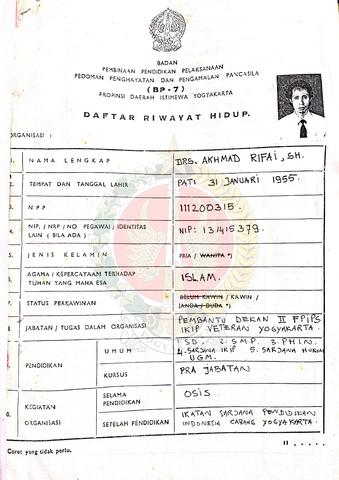 BADAN
PEMBINAAN PENDIDIKAN PELAKSANAAN
PEDOMAN PENGHAYATAN DAN PENGAMALAN PANCASILA
(BP-7)
PROPINSI DAERAH ISTIMEWA YOGYAKARTA
DAFTAR RIWAYAT HIDUP.
ORGANISASI :
1. NAMA LENGKAP DRS. AKHMAD RIFAI, SH.
2. TEMPAT DAN TANGGAL LAHIR PATI 31 JANUARI 1955.
3. NPP 111200315.
4. NIP, / NRP / NO PEGAWAI / IDENTITAS
LAIN ( BILA ADA ) NIP: 131415379.
5. JENIS KELAMIN PRIA / WANITA *)
6. AGAMA / KEPERCAYAAN TERHADAP
TUHAN YANG MAHA ESA ISLAM.
7. STATUS PERKAWINAN BELUM KAWIN / KAWIN /
JANDA / DUDA *)
8. JABATAN / TUGAS DALAM ORGANISASI PEMBANTU DEKAN II FPIPS
IKIP VETERAN YOGYAKARTA.
9. PENDIDIKAN UMUM 1. SD. 2. SMP. 3. PHIN.
4. SARJANA IKIP 5. SARJANA HUKUM
UGM.
KURSUS PRA JABATAN
10. KEGIATAN ORGANISASI SELAMA
PENDIDIKAN OSIS
SETELAH PENDIDIKAN IKATAN SARJANA PENDIDIKAN
INDONESIA CABANG YOGYAKARTA.
11 . . . . .
Coret yang tidak perlu.